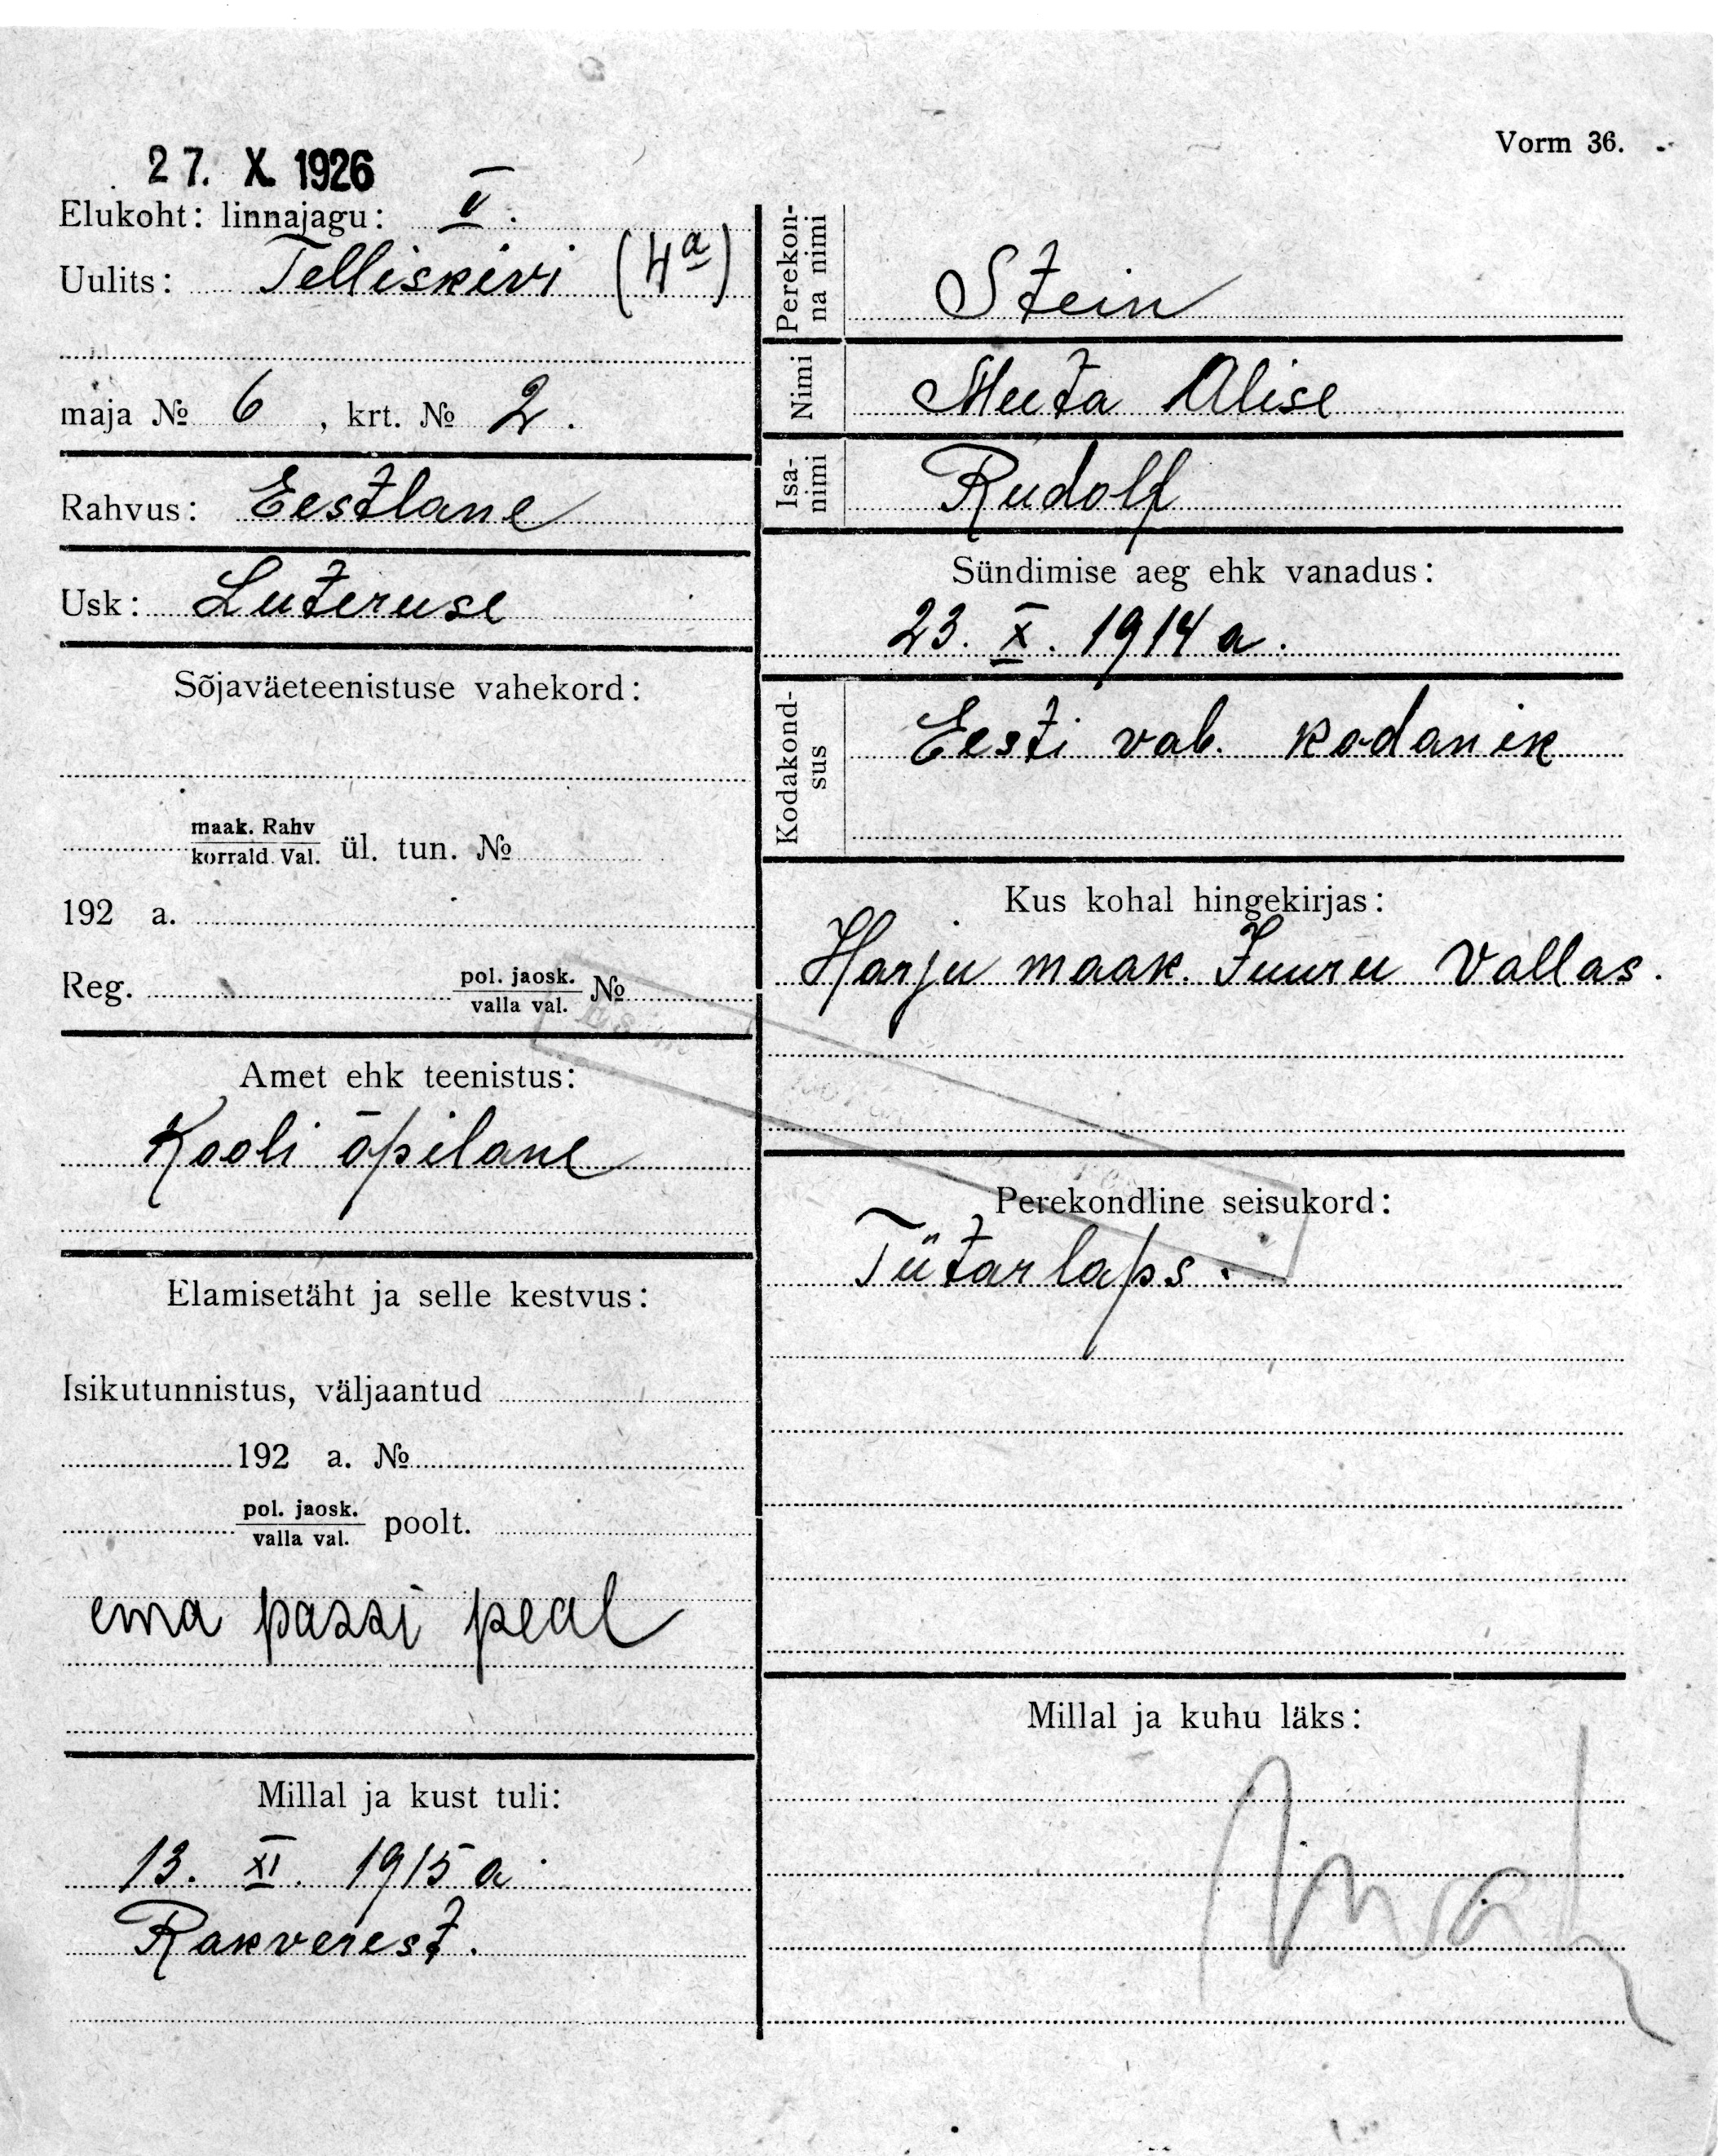 Vorm 36.
27. X. 1926
Elukoht: linnajagu: V.
Uulits: Telliskivi (4a)
maja № 6, krt. № 2.
Rahvus: Eestlane
Usk: Luteruse
Sõjaväeteenistuse vahekord:
maak. Rahv
korrald. Val. ül. tun. №
192 a.
Reg. pol. jaosk. №
valla val.
Amet ehk teenistus:
Kooli õpilane
Elamisetäht ja selle kestvus:
Isikutunnistus, väljaantud
192 a. №
pol. jaosk. poolt.
valla val.
ema passi peal
Millal ja kust tuli:
13. XI. 1915 a.
Rakverest.
Perekon-
na nimi
Stein
Nimi
Meeta Alise
Isa-
nimi
Rudolf
Sündimise aeg ehk vanadus:
23. X. 1914 a.
Kodakond-
sus
Eesti vab. kodanik
Kus kohal hingekirjas:
Harju maak. Juuru Vallas.
Perekondline seisukord:
Tütarlaps.
Millal ja kuhu läks: